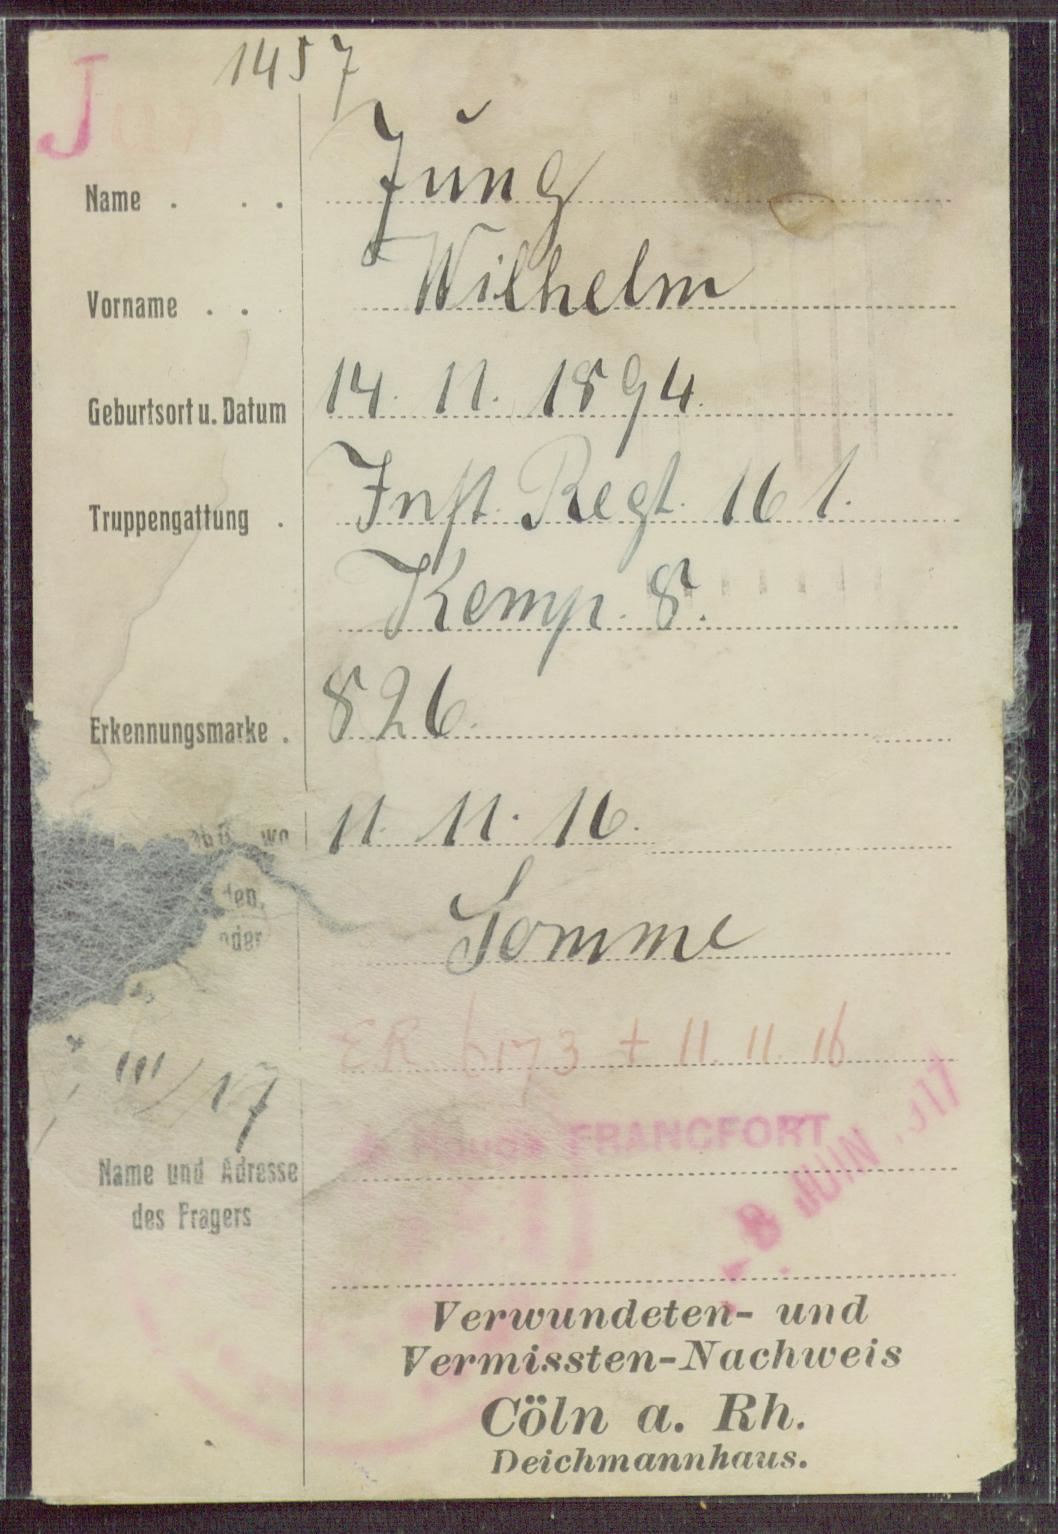 1457
J
Name . . . Jung
Vorname . . Wilhelm
Geburtsort u. Datum 14. 11. 1894.
Truppengattung . Inft. Regt. 161.
Komp. 8.
Erkennungsmarke . 826.
wo 11. 11. 16.
den,
oder Somme
ER 6173 + 11. 11. 16
III/17
FRANCFORT
8 JUIN
Name und Adresse
des Fragers
Verwundeten- und
Vermissten-Nachweis
Cöln a. Rh.
Deichmannhaus.